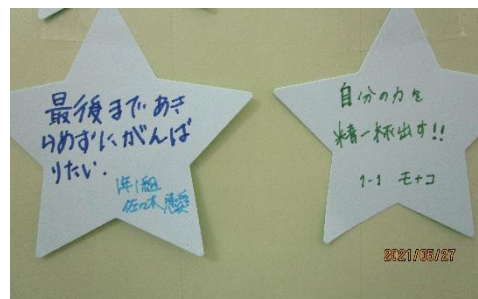 最後まであき
らめずに、がんば
りたい.
1年1組
佐々木
自分の力を
精一杯出す!!
1-1 モナコ
2021/05/27